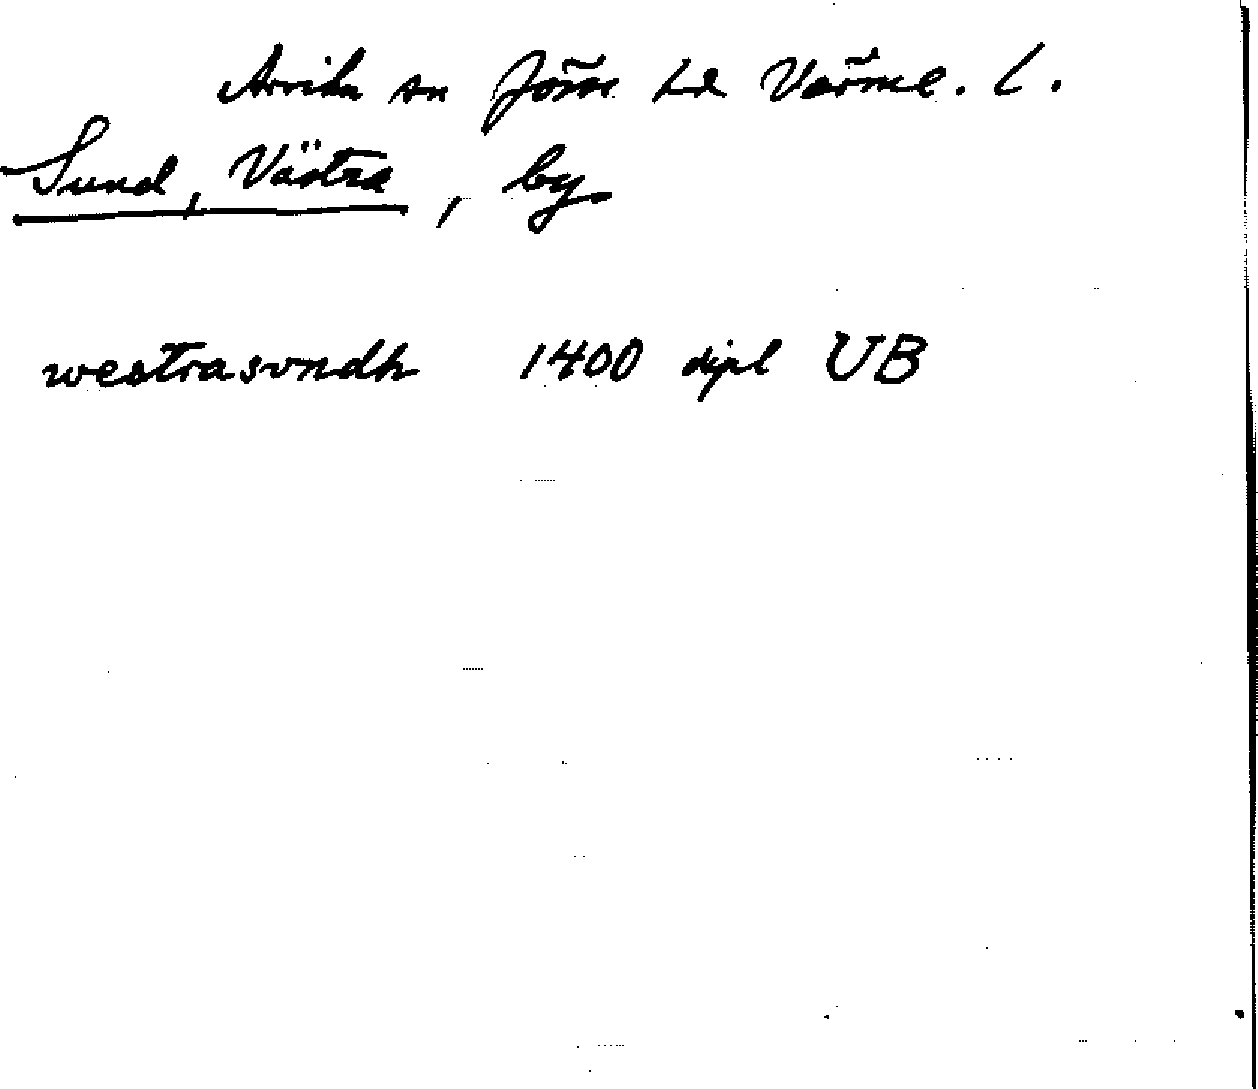 Arvika sn Jösse hd Värml. l.
Sund, Västra, by
westrasvndh 1400 dipl UB